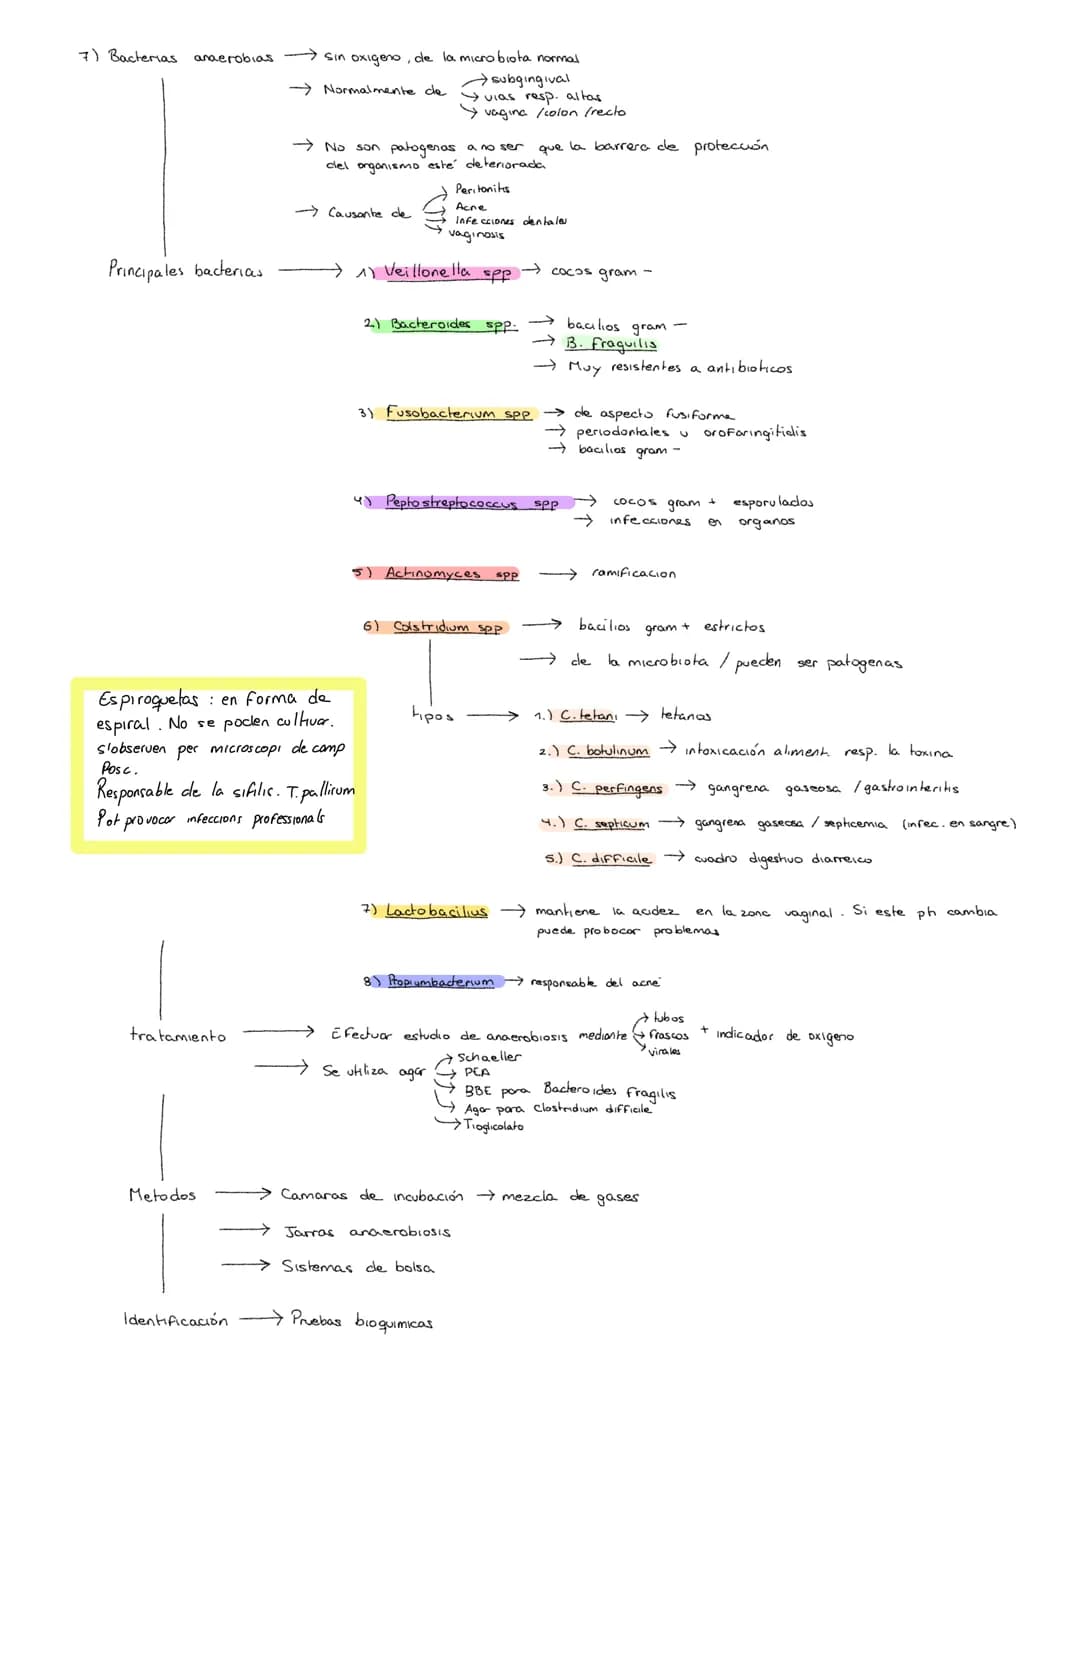 7) Bacterias anaerobias → sin oxigeno, de la microbiota normal
→ Normalmente de → subgingival
→ vias resp. altas
→ vagina / colon / recto
→ No son patogenas a no ser que la barrera de protección
del organismo esté deteriorada
→ Causante de → Peritonitis
→ Acne
→ Infecciones dentales
→ vaginosis
Principales bacterias → 1) Veillonella spp → cocos gram -
2) Bacteroides spp. → bacilios gram -
→ B. Fraguilis
→ Muy resistentes a antibioticos
3) Fusobacterium spp → de aspecto fusiforme
→ periodontales u orofaringitidis
→ bacilios gram -
4) Peptostreptococcus spp → cocos gram + esporulados
→ infecciones en organos
5) Actinomyces spp → ramificacion
6) Colstridium spp → bacilios gram + estrictos
→ de la microbiota / pueden ser patogenas
tipos → 1.) C. tetani → tetanos
2.) C. botulinum → intoxicación aliment. resp. la toxina
3.) C. perfingens → gangrena gaseosa / gastrointeritis
4.) C. septicum → gangrena gasecsa / septicemia (infec. en sangre)
5.) C. difficile → cuadro digestivo diarreico
Espiroquetas : en forma de
espiral. No se poden cultivar.
s'observen per microscopi de camp
fosc.
Responsable de la sífilic. T. pallirum
Pot provocar infeccions professionals
7) Lactobacilius → mantiene la acidez en la zona vaginal. Si este ph cambia
puede probocar problemas
8) Propiumbacterium → responsable del acné
tratamiento → Efectuar estudio de anaerobiosis mediante → tubos
→ frascos + indicador de oxigeno
→ virales
→ Se utiliza agar → Schaeller
→ PEA
→ BBE para Bacteroides Fragilis
→ Agar para Clostridium difficile
→ Tioglicolato
Metodos → Camaras de incubación → mezcla de gases
→ Jarras anaerobiosis
→ Sistemas de bolsa
Identificación → Pruebas bioquimicas